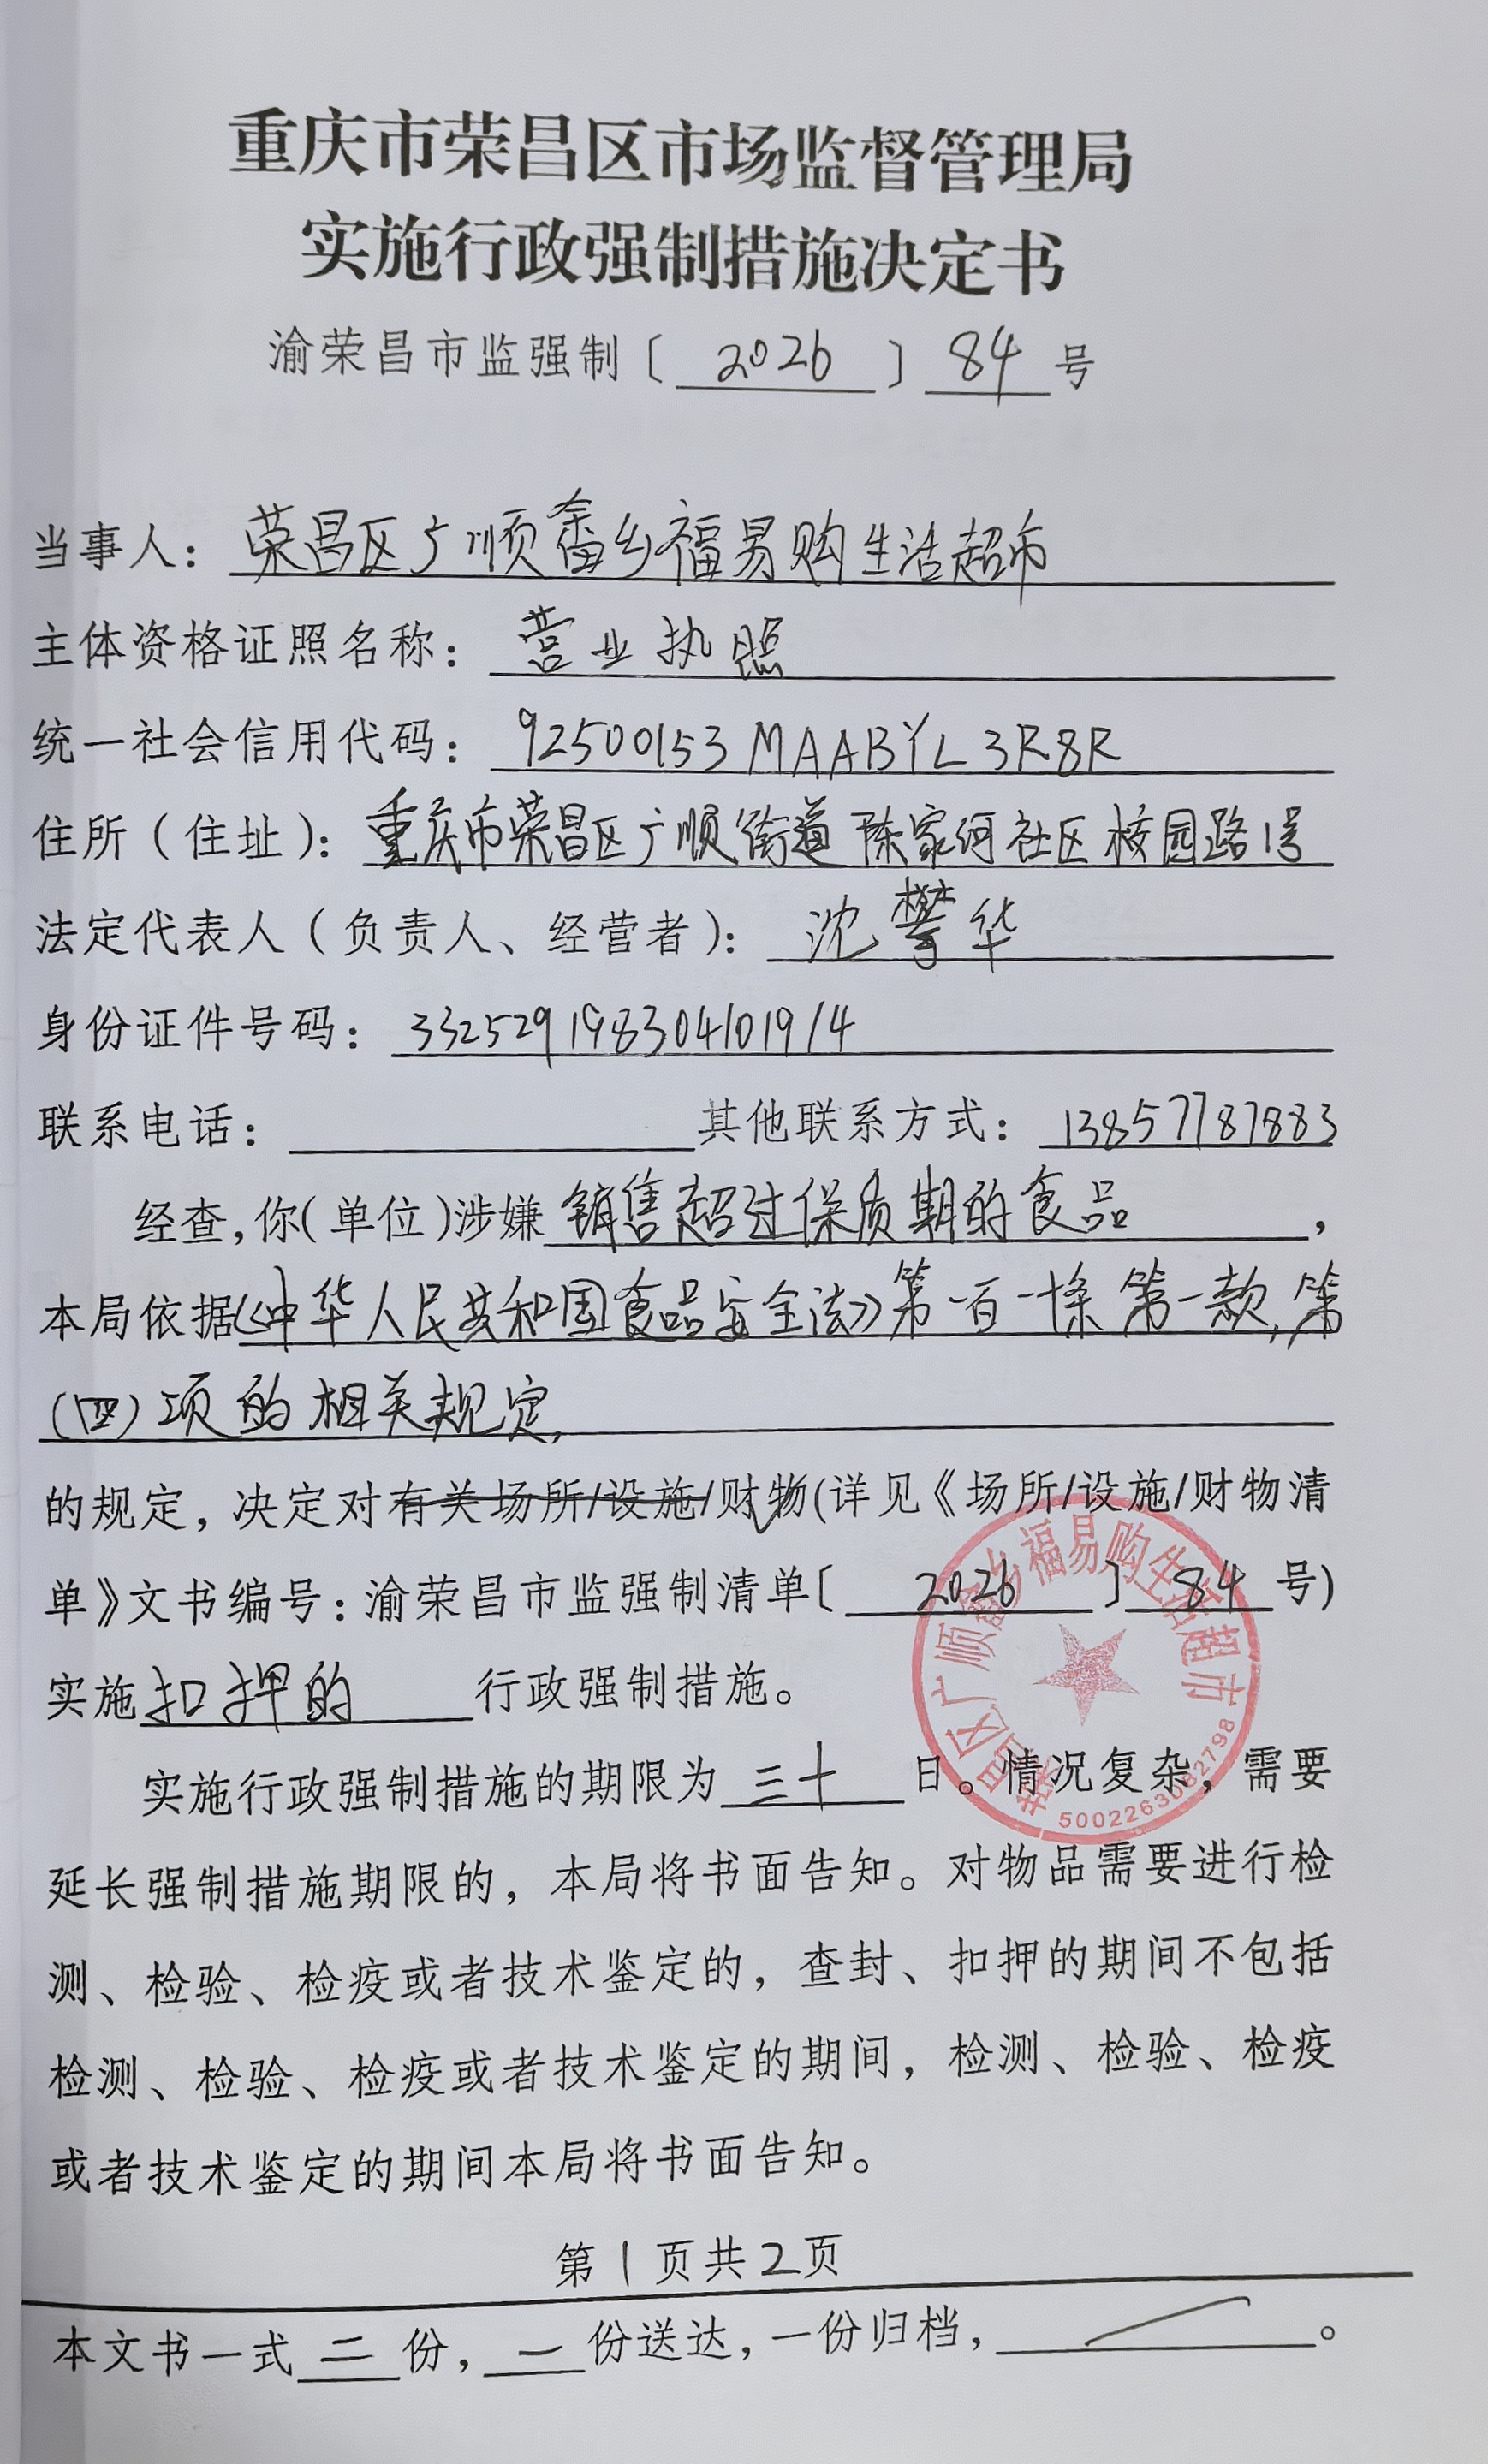 重庆市荣昌区市场监督管理局
实施行政强制措施决定书
渝荣昌市监强制〔2026〕84号
当事人：荣昌区广顺畲乡福易购生活超市
主体资格证照名称：营业执照
统一社会信用代码：92500153MAABYL3R8R
住所（住址）：重庆市荣昌区广顺街道陈家河社区校园路1号
法定代表人（负责人、经营者）：沈攀华
身份证件号码：332529198304101914
联系电话：其他联系方式：13857787883
经查，你（单位）涉嫌销售超过保质期的食品，
本局依据《中华人民共和国食品安全法》第一百一十条第一款，第
（四）项的相关规定，
的规定，决定对有关场所/设施/财物(详见《场所/设施/财物清
单》文书编号：渝荣昌市监强制清单〔2026〕84号)
实施扣押的行政强制措施。
实施行政强制措施的期限为三十日。情况复杂，需要
延长强制措施期限的，本局将书面告知。对物品需要进行检
测、检验、检疫或者技术鉴定的，查封、扣押的期间不包括
检测、检验、检疫或者技术鉴定的期间，检测、检验、检疫
或者技术鉴定的期间本局将书面告知。
荣昌区广顺畲乡福易购生活超市
5002263082798
第1页共2页
本文书一式二份，一份送达，一份归档，。